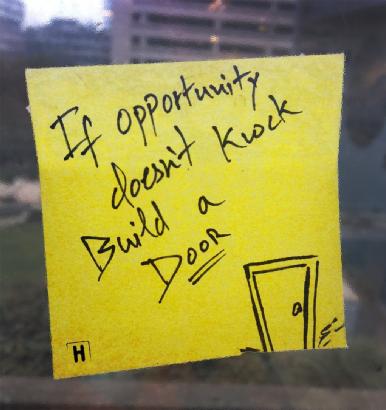 If opportunity
doesn't knock
Build a
Door
H